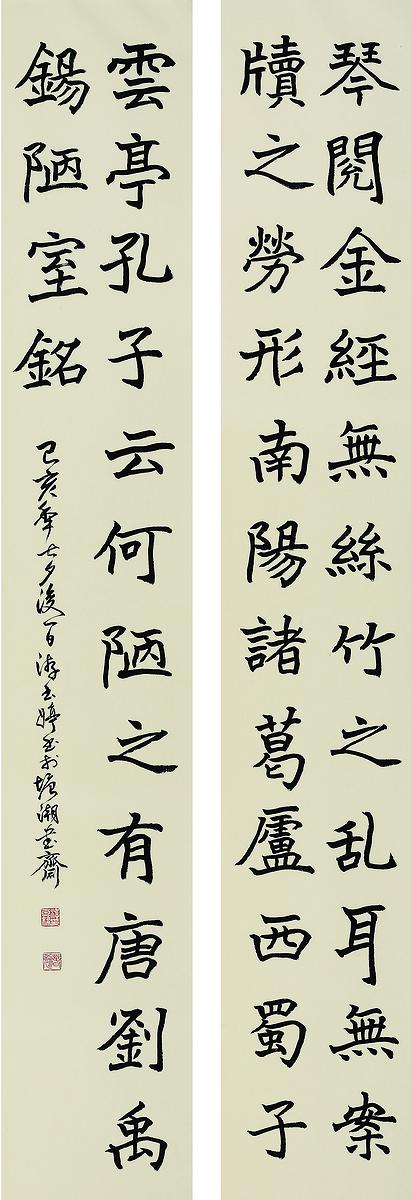 琴閱金經無絲竹之乱耳無案
牘之勞形南陽諸葛廬西蜀子
雲亭孔子云何陋之有唐劉禹
錫陋室銘
己亥年七夕後一日游玉婷書於塘湖書齋